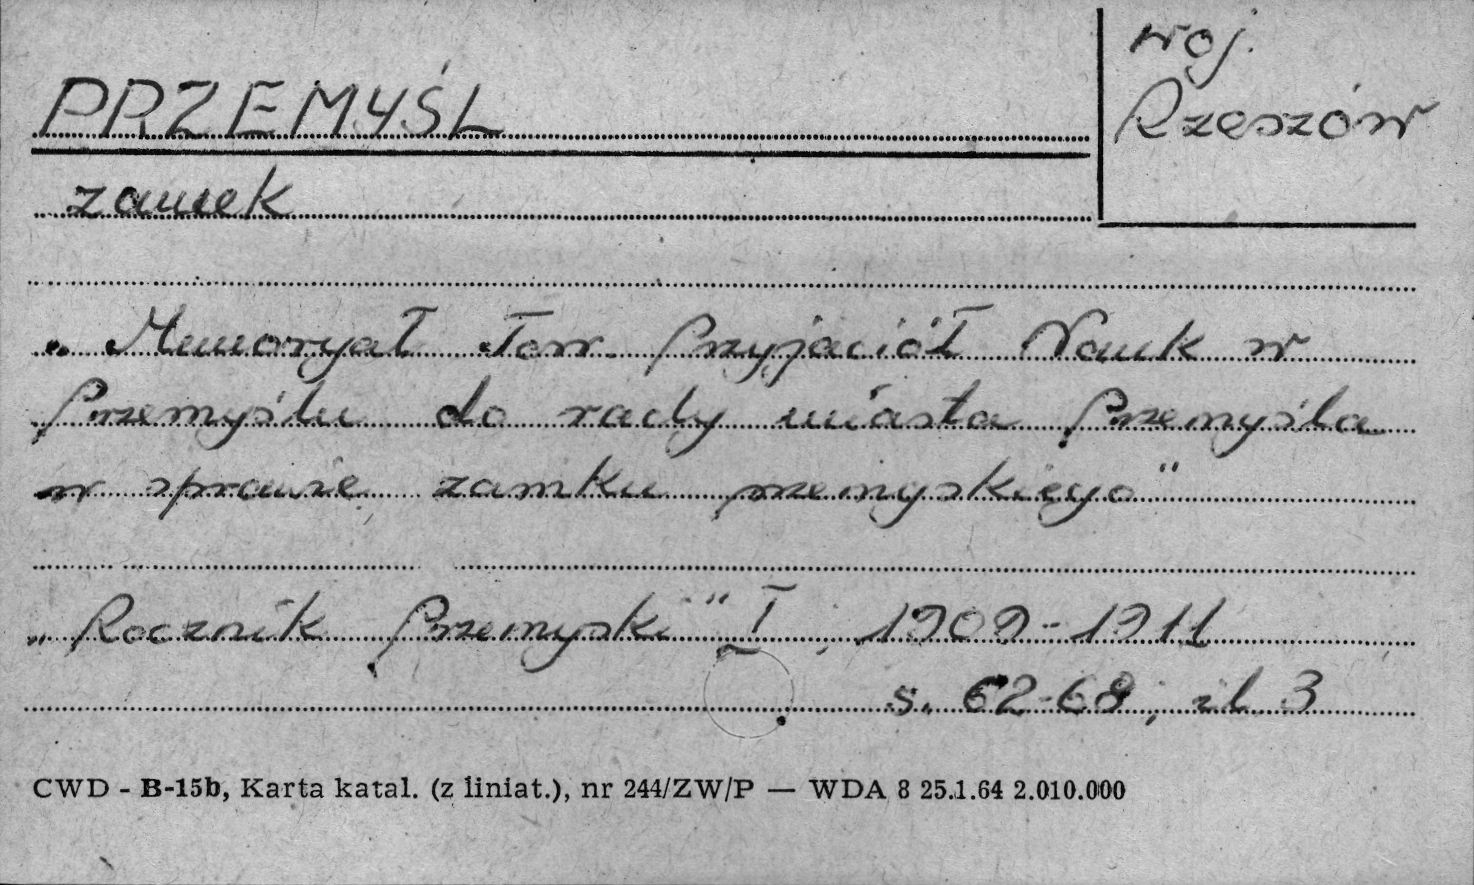 PRZEMYŚL
woj.
Rzeszów
zamek
„Memoryał Tow. Przyjaciół Nauk w
Przemyślu do rady miasta Przemyśla
w sprawie zamku przemyskiego"
„Rocznik Przemyski" I, 1909-1911
s. 62-68, il. 3
CWD - B-15b, Karta katal. (z liniat.), nr 244/ZW/P — WDA 8 25.1.64 2.010.000